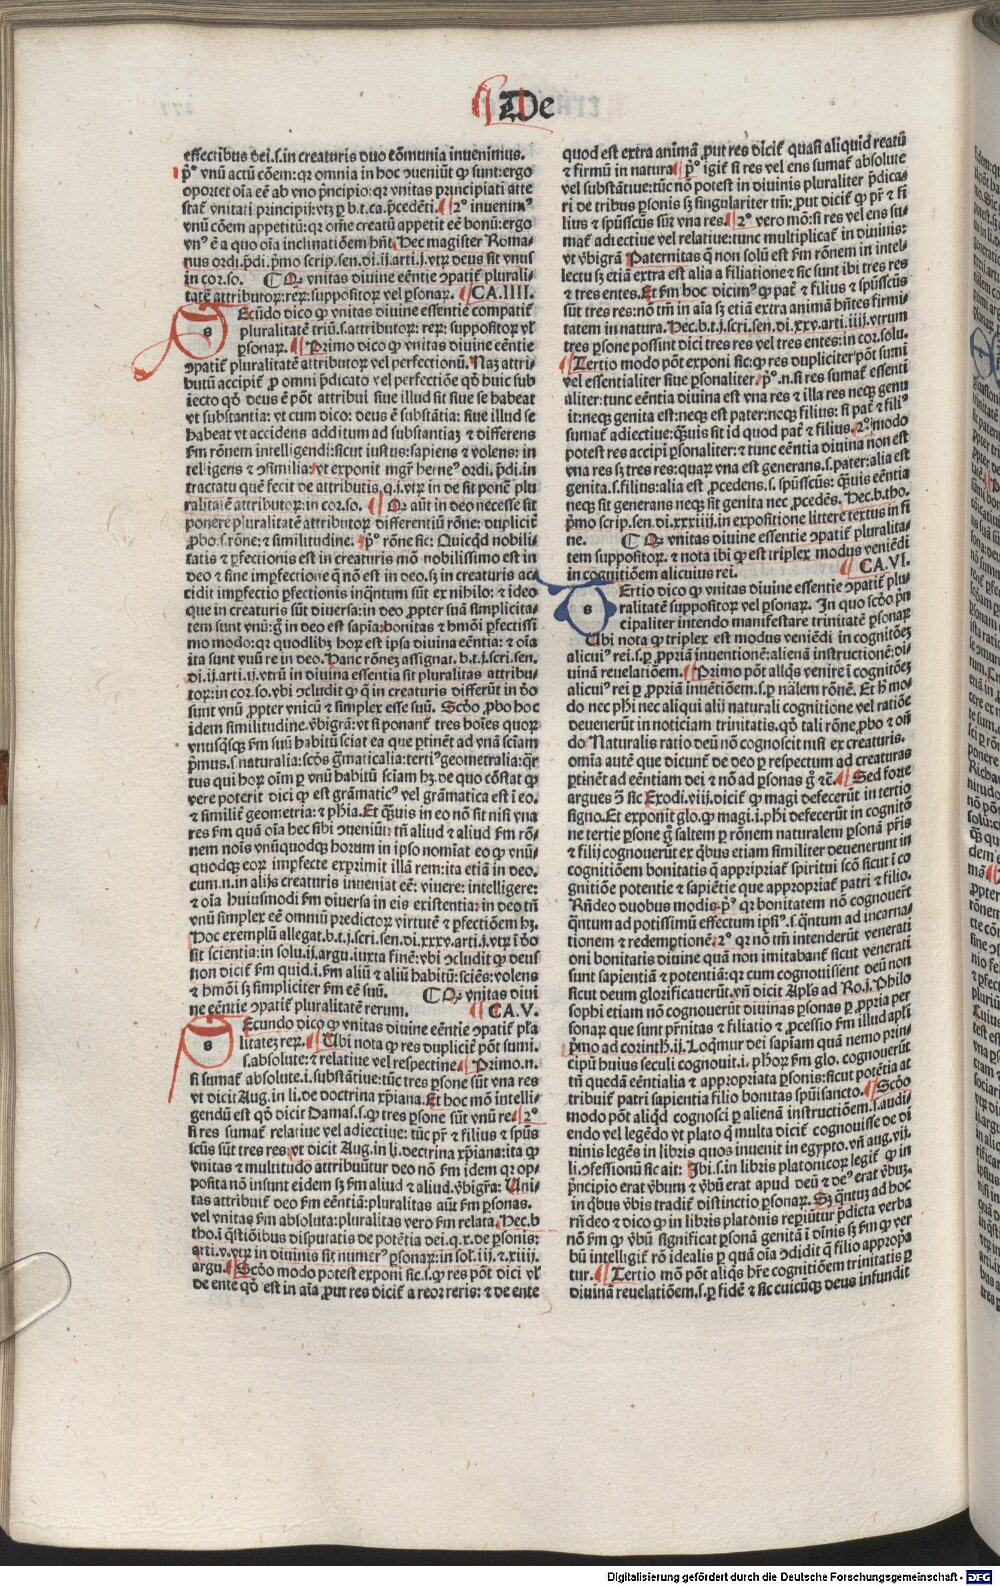 De
effectibus dei.s.in creaturis duo cõmunia inuenimus.
pº vnũ actũ cõem: qꝛ omnia in hoc ↄueniũt ꝙ sunt: ergo
oportet oĩa eẽ ab vno pͥncipio: qꝛ vnitas principiati atte
stat᷑ vnitati principij: vtꝫ ꝑ b.t.ca.p̃cedẽti. 2º inuenimꝰ
vnũ cõem appetitũ: qꝛ om̃e creatũ appetit eẽ bonũ: ergo
vnꝰ ẽ a quo oĩa inclinatiõem hñt. Hec magister Roma⸗
nus ordi.p̃di.pͥmo scrip.sen.di.ij.arti.j.vtꝝ deus sit vnus
in cor.so. ¶ Qꝙ vnitas diuine eẽntie ↄpatit᷑ plurali⸗
tatẽ attributoꝝ: reꝝ: suppositoꝝ vel ꝑsonaꝝ. CA.IIII.
s Ecũdo dico ꝙ vnitas diuine essentie compatit᷑
pluralitatẽ triũ.s.attributoꝝ: reꝝ: suppositoꝝ vl̓
ꝑsonaꝝ. Primo dico ꝙ vnitas diuine eẽntie
ↄpatit᷑ pluralitatẽ attributoꝝ vel perfectionũ. Naꝫ attri⸗
butũ accipit᷑ ꝓ omni p̃dicato vel perfectiõe qõ huic sub
iecto qõ deus ẽ põt attribui siue illud sit siue se habeat
vt substantia: vt cum dico: deus ẽ substãtia: siue illud se
habeat vt accidens additum ad substantiaꝫ ⁊ differens
ẜm rõnem intelligendi: sicut iustus: sapiens ⁊ volens: in
telligens ⁊ ↄsimilia: vt exponit mgr̃ herueꝰ ordi.p̃di.in
tractatu quẽ fecit de attributis.q.j.vtꝝ in de sit ponẽ plu
ralitatẽ attributoꝝ: in cor.so. Qꝙ aũt in deo necesse sit
ponere pluralitatẽ attributoꝝ differentiũ rõne: duplicit᷑
ꝓbo.s.rõne: ⁊ similitudine. pº rõne sic: Quicqd nobili⸗
tatis ⁊ ꝑfectionis est in creaturis mõ nobilissimo est in
deo ⁊ sine imꝑfectione q̃ nõ est in deo. sꝫ in creaturis ac⸗
cidit imꝑfectio ꝑfectionis inqͣntum sũt ex nihilo: ⁊ ideo
que in creaturis sũt diuersa: in deo ꝓpter suã simplicita⸗
tem sunt vnũ: g̊ in deo est sapĩa: bonitas ⁊ hmõi ꝑfectissi
mo modo: qꝛ quodlibꝫ hoꝝ est ipsa diuina eẽntia: ⁊ oĩa
ita sunt vnũ re in deo. Hanc rõneꝫ assignat. b.t.j.scri.sen.
di.ij.arti.ij.vtrũ in diuina essentia sit pluralitas attribu⸗
toꝝ: in cor.so.vbi ↄcludit ꝙ q̃ in creaturis differũt in deo
sunt vnũ ꝓpter vnicũ ⁊ simplex esse suũ. Scd̃o ꝓbo hoc
idem similitudine. v̓bigrã: vt si ponant᷑ tres hoĩes quoꝝ
vnusqͥsqꝫ ẜm suũ habitũ sciat ea que ꝑtinẽt ad vnã sciam
pͥmus.s.naturalia: scd̃s grãmaticalia: tertiꝰ geometralia: qͣr
tus qui hoꝝ oĩm ꝑ vnũ habitũ sciam hꝫ. de quo cõstat ꝙ
vere poterit dici ꝙ est grãmaticꝰ vel grãmatica est ĩ eo.
⁊ similit᷑ geometria: ⁊ phĩa. Et qͣuis in eo nõ sit nisi vna
res ẜm quã oĩa hec sibi ↄueniũt: tñ aliud ⁊ aliud ẜm rõ⸗
nem noĩs vnũquodqꝫ horum in ipso nomĩat eo ꝙ vnũ⸗
quodqꝫ eoꝝ imꝑfecte exprimit illã rem: ita etiã in deo.
cum.n.in alijs creaturis inueniat eẽ: viuere: intelligere:
⁊ oĩa huiusmodi ẜm diuersa in eis existentia: in deo tñ
vnũ simplex eẽ omniũ predictoꝝ virtutẽ ⁊ ꝑfectiõem hꝫ.
Hoc exemplũ allegat.b.t.j.scri.sen.di.xxxv.arti.j.vtꝝ ĩ do
sit scientia: in solu.ij.argu.iuxta finẽ: vbi ↄcludit ꝙ deus
non dicit᷑ ẜm quid.i.ẜm aliũ ⁊ aliũ habitũ: sciẽs: volens
⁊ hmõi sꝫ simpliciter ẜm eẽ suũ. ¶ Qꝙ vnitas diui
ne eẽntie ↄpatit᷑ pluralitatem rerum. CA.V.
s Ecundo dico ꝙ vnitas diuine eẽntie ↄpatit᷑ plũa
litateꝫ reꝝ. Vbi nota ꝙ res duplicit᷑ põt sumi.
s.absolute: ⁊ relatiue vel respectiue. Primo.n.
si sumat᷑ absolute.i.substãtiue: tũc tres ꝑsone sũt vna res
vt dicit Aug.in li.de doctrina xp̃iana. Et hoc mõ intelli⸗
gendũ est qõ dicit Damas.s.ꝙ tres ꝑsone sũt vnũ re. 2º
si res sumat᷑ relatiue vel adiectiue: tũc pr̃ ⁊ filius ⁊ spũs
scũs sũt tres res: vt dicit Aug.in li.doctrina xp̃iana: ita ꝙ
vnitas ⁊ multitudo attribuũtur deo nõ ẜm idem qꝛ op⸗
posita nõ insunt eidem sꝫ ẜm aliud ⁊ aliud. v̓bigr̃a: Vni⸗
tas attribuit᷑ deo ẜm eẽntiã: pluralitas aũt ẜm ꝑsonas.
vel vnitas ẜm absoluta: pluralitas vero ẜm relata. Hec.b
tho.ĩ q̃stiõibus disputatis de potẽtia dei.q.x.de ꝑsonis:
arti.v.vtꝝ in diuinis sit numerꝰ ꝑsonaꝝ: in sol.iij.⁊ xiiij.
argu. Scd̃o modo potest exponi sic.s.ꝙ res põt dici vl̓
de ente qõ est in aĩa ꝓut res dicit᷑ a reor reris: ⁊ de ente
quod est extra animã ꝓut res dicit᷑ quasi aliquid reatũ
⁊ firmũ in natura. pº igit᷑ si res vel ens sumat᷑ absolute
vel substãtiue: tũc nõ potest in diuinis pluraliter p̃dica⸗
ri de tribus ꝑsonis sꝫ singulariter tm̃: ꝓut dicit᷑ ꝙ pr̃ ⁊ fi
lius ⁊ spũsscũs sũt vna res. 2º vero mõ: si res vel ens su⸗
mat᷑ adiectiue vel relatiue: tunc multiplicat᷑ in diuinis:
vt v̓bigrã Paternitas q̃ non solũ est ẜm rõnem in intel⸗
lectu sꝫ etiã extra est alia a filiatione: ⁊ sic sunt ibi tres res
⁊ tres entes. Et ẜm hoc dicimꝰ ꝙ pat᷑ ⁊ filius ⁊ spũsscũs
sũt tres res: nõ tm̃ in aĩa sꝫ etiã extra animã hñtes firmi⸗
tatem in natura. Hec.b.t.j.scri.sen.di.xxv.arti.iiij.vtrum
tres ꝑsone possint dici tres res vel tres entes: in cor.solu.
Tertio modo põt exponi sic: ꝙ res dupliciter põt sumi
vel essentialiter siue ꝑsonaliter. pº.n.si res sumat᷑ essenti
aliter: tunc eẽntia diuina est vna res ⁊ illa res neqꝫ genu
it: neqꝫ genita est: neqꝫ est pater: neqꝫ filius: si pat᷑ ⁊ filiꝰ
sumat᷑ adiectiue: qͣuis sit id quod pat᷑ ⁊ filius. 2º modo
potest res accipi ꝑsonaliter: ⁊ tunc eẽntia diuina non est
vna res sꝫ tres res: quaꝝ vna est generans.s.pater: alia est
genita.s.filius: alia est ꝓcedens.s.spũsscũs: qͣuis eẽntia
neqꝫ sit generans neqꝫ sit genita nec ꝓcedẽs. Hec.b.tho.
pͥmo scrip.sen.di.xxxiiij.in expositione littere textus in fi
ne. ¶ Qꝙ vnitas diuine essentie ↄpatit᷑ pluralita⸗
tem suppositoꝝ. ⁊ nota ibi ꝙ est triplex modus veniẽdi
in cognitiõem alicuius rei. CA.VI.
s Ertio dico ꝙ vnitas diuine essentie ↄpatit᷑ plu⸗
ralitatẽ suppositoꝝ vel ꝑsonaꝝ. In quo scd̃o pͥn
cipaliter intendo manifestare trinitatẽ ꝑsonaꝝ
Vbi nota ꝙ triplex est modus veniẽdi in cognitõeꝫ
alicuiꝰ rei.s.ꝑ ꝓpriã inuentionẽ: alienã instructionẽ: di⸗
uinã reuelatiõem. Primo põt aliqͥs venire ĩ cognitõeꝫ
alicuiꝰ rei ꝑ ꝓpriam inuẽtiõem.s.ꝑ nãlem rõnẽ. Et h̃ mo
do nec phi nec aliqui alij naturali cognitione vel ratiõe
deuenerũt in noticiam trinitatis. qõ tali rõne ꝓbo ⁊ oñ
do Naturalis ratio deũ nõ cognoscit nisi ex creaturis.
omĩa autẽ que dicunt᷑ de deo ꝑ respectum ad creaturas
ꝑtinẽt ad eẽntiam dei ⁊ nõ ad ꝑsonas g̊ ⁊c̃. Sed forte
argues ↄ̃ sic Exodi.viij.dicit᷑ ꝙ magi defecerũt in tertio
signo. Et exponit glo.ꝙ magi.i.phi defecerũt in cognitõ
ne tertie ꝑsone g̊ saltem ꝑ rõnem naturalem ꝑsonã pr̃is
⁊ filij cognouerũt ex qͥbus etiam similiter deuenerunt in
cognitiõem bonitatis q̃ appropriat᷑ spiritui scõ sicut ĩ co
gnitiõe potentie ⁊ sapiẽtie que appropriat᷑ patri ⁊ filio.
Rñdeo duobus modis. pº qꝛ bonitatem nõ cognouert̃
qͣntum ad potissimũ effectum ipsiꝰ.s.qͣntum ad incarna⸗
tionem ⁊ redemptionẽ. 2º qꝛ nõ tm̃ intenderũt venerati
oni bonitatis diuine quã non imitabant᷑ sicut venerati
sunt sapientiã ⁊ potentiã: qꝛ cum cognouissent deũ non
sicut deum glorificauerũt. vñ dicit Apls ad Ro.j. Philo
sophi etiam nõ cognouerũt diuinas ꝑsonas ꝑ ꝓpria per
sonaꝝ que sunt pr̃nitas ⁊ filiatio ⁊ ꝓcessio ẜm illud apli
pͥmo ad corinth.ij. Loqͥmur dei sapiam quã nemo prin⸗
cipũ huius seculi cognouit.i.phoꝝ ẜm glo. cognouerũt
tñ quedã eẽntialia ⁊ appropriata ꝑsonis: sicut potẽtia at
tribuit᷑ patri sapientia filio bonitas spũisancto. Scd̃o
modo põt aliqͥd cognosci ꝑ alienã instructiõem.s.audi⸗
endo vel legẽdo vt plato q̃ multa dicit᷑ cognouisse de di
uinis legẽs in libris quos inuenit in egypto. vñ aug.vij.
li.ↄfessionũ sic ait: Ibi.s.in libris platonicoꝝ legit᷑ ꝙ in
pͥncipio erat v̓bum ⁊ v̓bũ erat apud deũ ⁊ deꝰ erat v̓buꝫ.
in qͥbus v̓bis tradit᷑ distinctio ꝑsonaꝝ. Sꝫ qͣntuꝫ ad hoc
rñdeo ⁊ dico ꝙ in libris platonis reꝑiũtur p̃dicta verba
nõ ẜm ꝙ v̓bũ significat ꝑsonã genitã ĩ diuinis sꝫ ẜm ꝙ ver
bũ intelligit᷑ rõ idealis ꝑ quã oĩa ↄdidit q̃ filio appropa
tur. Tertio mõ põt aliqͥs hr̃e cognitiõem trinitatis ꝑ
diuinã reuelatiõem.s.ꝑ fidẽ ⁊ sic cuicũqꝫ deus infundit
Digitalisierung gefördert durch die Deutsche Forschungsgemeinschaft - DFG